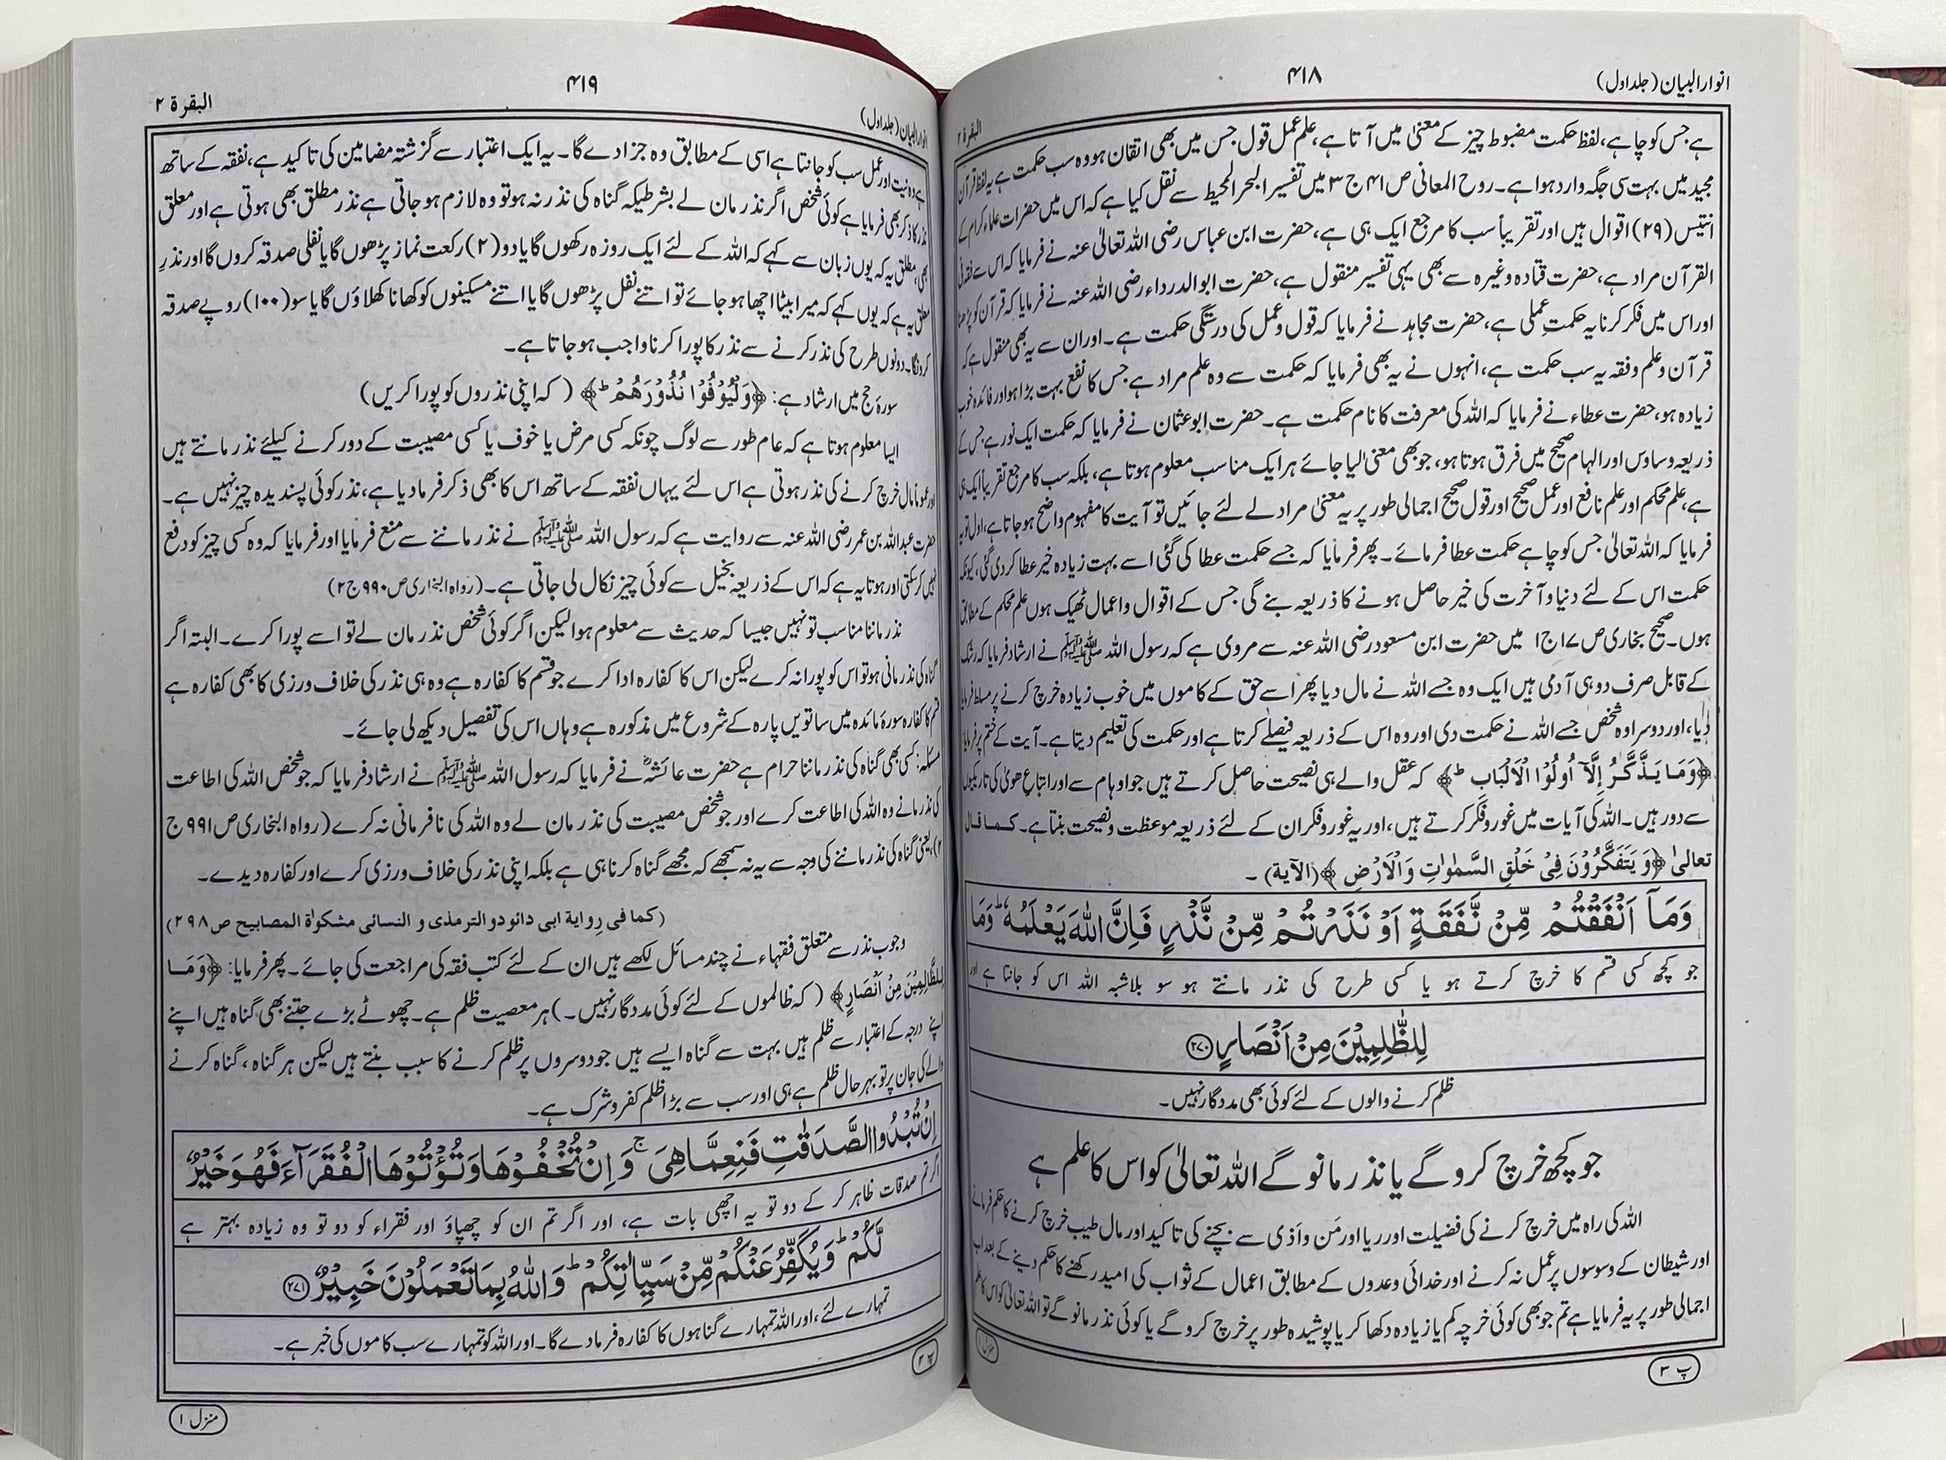 انوار البیان (جلد اول)
۴۱۸
البقرۃ ۲
ہے جس کو چاہے، لفظ حکمت مضبوط چیز کے معنیٰ میں آتا ہے، علم عمل قول جس میں بھی اتقان ہو وہ سب حکمت ہے یہ لفظ قرآن
مجید میں بہت سی جگہ وارد ہوا ہے۔ روح المعانی ص ۴۱ ج ۳ میں تفسیر البحر المحیط سے نقل کیا ہے کہ اس میں حضرات علماء کرام کے
انتیس (۲۹) اقوال ہیں اور تقریباً سب کا مرجع ایک ہی ہے، حضرت ابن عباس رضی اللہ تعالیٰ عنہ نے فرمایا کہ اس سے
القرآن مراد ہے، حضرت قتادہ وغیرہ سے بھی یہی تفسیر منقول ہے، حضرت ابوالدرداء رضی اللہ عنہ نے فرمایا کہ قرآن کو پڑھنا
اور اس میں فکر کرنا یہ حکمت عملی ہے، حضرت مجاہد نے فرمایا کہ قول و عمل کی درستگی حکمت ہے۔ اور ان سے یہ بھی منقول ہے کہ
قرآن و علم و فقہ یہ سب حکمت ہے، انہوں نے یہ بھی فرمایا کہ حکمت سے وہ علم مراد ہے جس کا نفع بہت بڑا ہو اور فائدہ خوب
زیادہ ہو، حضرت عطاء نے فرمایا کہ اللہ کی معرفت کا نام حکمت ہے۔ حضرت ابوعثمان نے فرمایا کہ حکمت ایک نور ہے جس کے
ذریعہ وساوس اور الہام صحیح میں فرق ہوتا ہو، جو بھی معنیٰ لیا جائے ہر ایک مناسب معلوم ہوتا ہے، بلکہ سب کا مرجع تقریباً ایک ہی
ہے، علم محکم اور علم نافع اور عمل صحیح اور قول صحیح اجمالی طور پر یہ معنیٰ مراد لے لئے جائیں تو آیت کا مفہوم واضح ہو جاتا ہے، اول تو یہ
فرمایا کہ اللہ تعالیٰ جس کو چاہے حکمت عطا فرمائے۔ پھر فرمایا کہ جسے حکمت عطا کی گئی اسے بہت زیادہ خیر عطا کر دی گئی، کیونکہ
حکمت اس کے لئے دنیا و آخرت کی خیر حاصل ہونے کا ذریعہ بنے گی جس کے اقوال و اعمال ٹھیک ہوں علم محکم کے مطابق
ہوں۔ صحیح بخاری ص ۱۷ ج ۱ میں حضرت ابن مسعود رضی اللہ عنہ سے مروی ہے کہ رسول اللہ ﷺ نے ارشاد فرمایا کہ رشک
کے قابل صرف دو ہی آدمی ہیں ایک وہ جسے اللہ نے مال دیا پھر اسے حق کے کاموں میں خوب زیادہ خرچ کرنے پر مسلط فرما
دیا، اور دوسرا وہ شخص جسے اللہ نے حکمت دی اور وہ اس کے ذریعہ فیصلے کرتا ہے اور حکمت کی تعلیم دیتا ہے۔ آیت کے ختم پر فرمایا
﴿وَمَا يَذَّكَّرُ إِلَّآ أُولُوا الْأَلْبَابِ ط﴾ کہ عقل والے ہی نصیحت حاصل کرتے ہیں جو اوہام سے اور اتباع ھویٰ کی تاریکیوں
سے دور ہیں۔ اللہ کی آیات میں غور و فکر کرتے ہیں، اور یہ غور و فکر ان کے لئے ذریعہ موعظت و نصیحت بنتا ہے۔ کما قال
تعالیٰ ﴿وَيَتَفَكَّرُوْنَ فِيْ خَلْقِ السَّمٰوٰتِ وَالْاَرْضِ﴾ (الآیة) ۔
وَمَآ اَنْفَقْتُمْ مِّنْ نَّفَقَةٍ اَوْ نَذَرْتُمْ مِّنْ نَّذْرٍ فَاِنَّ اللّٰهَ يَعْلَمُهٗ ط وَمَا
جو کچھ کسی قسم کا خرچ کرتے ہو یا کسی طرح کی نذر مانتے ہو سو بلاشبہ اللہ اس کو جانتا ہے اور
لِلظّٰلِمِيْنَ مِنْ اَنْصَارٍ ۲۷۰
ظلم کرنے والوں کے لئے کوئی بھی مددگار نہیں۔
جو کچھ خرچ کرو گے یا نذر مانو گے اللہ تعالیٰ کو اس کا علم ہے
اللہ کی راہ میں خرچ کرنے کی فضیلت اور ریا اور مَن و اَذی سے بچنے کی تاکید اور مال طیب خرچ کرنے کا حکم فرمانے
اور شیطان کے وسوسوں پر عمل نہ کرنے اور خدائی وعدوں کے مطابق اعمال کے ثواب کی امید رکھنے کا حکم دینے کے بعد اب
اجمالی طور پر یہ فرمایا ہے تم جو بھی کوئی خرچہ کم یا زیادہ دکھا کر یا پوشیدہ طور پر خرچ کرو گے یا کوئی نذر مانو گے تو اللہ تعالیٰ کو اس کا علم
پ ۳
منزل ۱
انوار البیان (جلد اول)
۴۱۹
البقرۃ ۲
ہے وہ نیت اور عمل سب کو جانتا ہے اسی کے مطابق وہ جزا دے گا۔ یہ ایک اعتبار سے گزشتہ مضامین کی تاکید ہے، نفقہ کے ساتھ
نذر کا ذکر بھی فرمایا ہے کوئی شخص اگر نذر مان لے بشرطیکہ گناہ کی نذر نہ ہو تو وہ لازم ہو جاتی ہے نذر مطلق بھی ہوتی ہے اور معلق
بھی، مطلق یہ کہ یوں زبان سے کہے کہ اللہ کے لئے ایک روزہ رکھوں گا یا دو (۲) رکعت نماز پڑھوں گا یا نفلی صدقہ کروں گا اور نذر
معلق یہ ہے کہ یوں کہے کہ میرا بیٹا اچھا ہو جائے تو اتنے نفل پڑھوں گا یا اتنے مسکینوں کو کھانا کھلاؤں گا یا سو (۱۰۰) روپے صدقہ
کروں گا۔ دونوں طرح کی نذر کرنے سے نذر کا پورا کرنا واجب ہو جاتا ہے۔
سورہ حج میں ارشاد ہے: ﴿وَلْيُوْفُوْا نُذُوْرَهُمْ ط﴾ (کہ اپنی نذروں کو پورا کریں)
ایسا معلوم ہوتا ہے کہ عام طور سے لوگ چونکہ کسی مرض یا خوف یا کسی مصیبت کے دور کرنے کیلئے نذر مانتے ہیں
اور عموماً مال خرچ کرنے کی نذر ہوتی ہے اس لئے یہاں نفقہ کے ساتھ اس کا بھی ذکر فرما دیا ہے، نذر کوئی پسندیدہ چیز نہیں ہے۔
حضرت عبداللہ بن عمر رضی اللہ عنہ سے روایت ہے کہ رسول اللہ ﷺ نے نذر ماننے سے منع فرمایا اور فرمایا کہ وہ کسی چیز کو دفع
نہیں کر سکتی اور ہوتا یہ ہے کہ اس کے ذریعہ بخیل سے کوئی چیز نکال لی جاتی ہے۔ (رواہ البخاری ص ۹۹۰ ج ۲)
نذر ماننا مناسب تو نہیں جیسا کہ حدیث سے معلوم ہوا لیکن اگر کوئی شخص نذر مان لے تو اسے پورا کرے۔ البتہ اگر
گناہ کی نذر مانی ہو تو اس کو پورا نہ کرے لیکن اس کا کفارہ ادا کرے جو قسم کا کفارہ ہے وہ ہی نذر کی خلاف ورزی کا بھی کفارہ ہے
قسم کا کفارہ سورۂ مائدہ میں ساتویں پارہ کے شروع میں مذکورہ ہے وہاں اس کی تفصیل دیکھ لی جائے۔
مسئلہ: کسی بھی گناہ کی نذر ماننا حرام ہے حضرت عائشہؓ نے فرمایا کہ رسول اللہ ﷺ نے ارشاد فرمایا کہ جو شخص اللہ کی اطاعت
کی نذر مانے وہ اللہ کی اطاعت کرے اور جو شخص مصیبت کی نذر مان لے وہ اللہ کی نافرمانی نہ کرے (رواہ البخاری ص ۹۹۱ ج
۲)، یعنی گناہ کی نذر ماننے کی وجہ سے یہ نہ سمجھے کہ مجھے گناہ کرنا ہی ہے بلکہ اپنی نذر کی خلاف ورزی کرے اور کفارہ دیدے۔
(کما فی روایة ابی دائود و الترمذی و النسائی مشکوٰة المصابیح ص ۲۹۸)
وجوب نذر سے متعلق فقہاء نے چند مسائل لکھے ہیں ان کے لئے کتب فقہ کی مراجعت کی جائے۔ پھر فرمایا: ﴿وَمَا
لِلظّٰلِمِيْنَ مِنْ اَنْصَارٍ﴾ (کہ ظالموں کے لئے کوئی مددگار نہیں۔) ہر معصیت ظلم ہے۔ چھوٹے بڑے جتنے بھی گناہ ہیں اپنے
اپنے درجہ کے اعتبار سے ظلم ہیں بہت سے گناہ ایسے ہیں جو دوسروں پر ظلم کرنے کا سبب بنتے ہیں لیکن ہر گناہ، گناہ کرنے
والے کی جان پر تو بہرحال ظلم ہے ہی اور سب سے بڑا ظلم کفر و شرک ہے۔
اِنْ تُبْدُوا الصَّدَقٰتِ فَنِعِمَّا هِيَ ج وَاِنْ تُخْفُوْهَا وَتُؤْتُوْهَا الْفُقَرَآءَ فَهُوَ خَيْرٌ
اگر تم صدقات ظاہر کر کے دو تو یہ اچھی بات ہے، اور اگر تم ان کو چھپاؤ اور فقراء کو دو تو وہ زیادہ بہتر ہے
لَّكُمْ ط وَيُكَفِّرُ عَنْكُمْ مِّنْ سَيِّاٰتِكُمْ ط وَاللّٰهُ بِمَا تَعْمَلُوْنَ خَبِيْرٌ ۲۷۱
تمہارے لئے، اور اللہ تمہارے گناہوں کا کفارہ فرما دے گا۔ اور اللہ کو تمہارے سب کاموں کی خبر ہے۔
منزل ۱